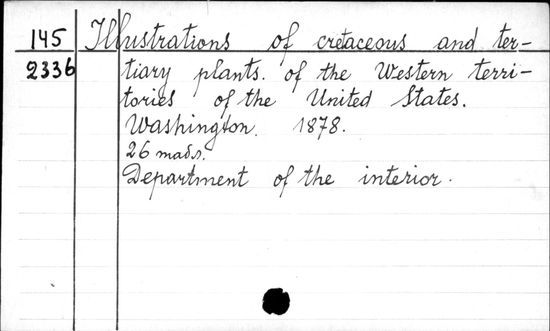 145 Illustrations of cretaceous and ter-
2336 tiary plants. of the Western terri-
tories of the United States.
Washington. 1878.
26 mads.
Department of the interior.